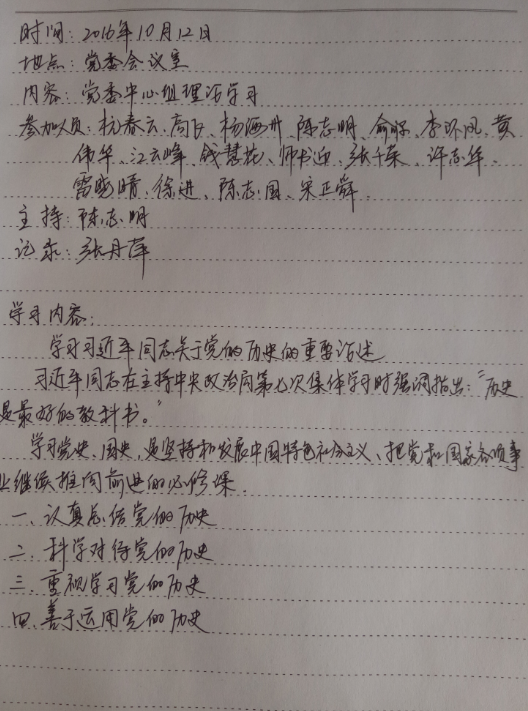 时间：2016年10月12日
地点：党委会议室
内容：党委中心组理论学习
参加人员：杭春云、高飞、杨海升、陈志明、俞昕、李环凤、黄
伟华、江云峰、钱慧花、师文迪、张千荣、许志华、
雷晓晴、徐进、陈志国、宋正舜
主持：陈志明
记录：张丹萍
学习内容：
学习习近平同志关于党的历史的重要论述
习近平同志在主持中央政治局第七次集体学习时强调指出：“历史
是最好的教科书。”
学习党史、国史，是坚持和发展中国特色社会主义、把党和国家各项事
业继续推向前进的必修课．
一、认真总结党的历史
二、科学对待党的历史
三、重视学习党的历史
四、善于运用党的历史